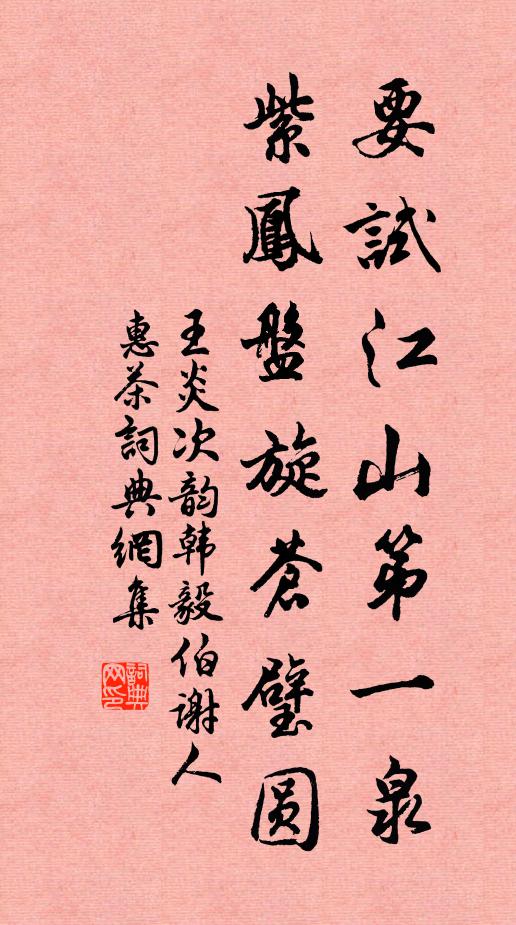 要試江山第一泉
紫鳳盤旋蒼璧圓
王炎次韵韩毅伯谢人
惠茶詞典網集
詞典网印